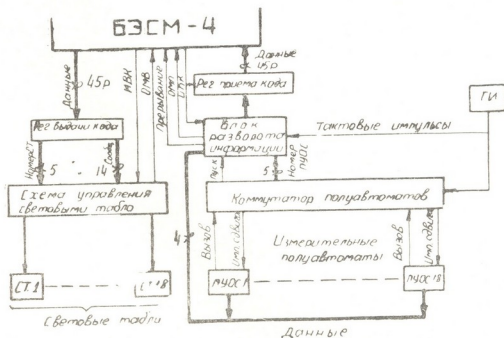 БЭСМ-4
Данные
45р
МВИ
ОМВ
Прерывание
Данные
45р
Рег приема кода
Рег выдачи кода
Блок разворота информации
Тактовые импульсы
ГИ
5
14
Пуск
5
Номер ПУОС
Схема управления световыми табло
Коммутатор полуавтоматов
4
Вызов
Имп сдвига
Измерительные полуавтоматы
Вызов
Имп сдвига
СТ1
СТ18
ПУОС1
ПУОС18
Световые табло
Данные